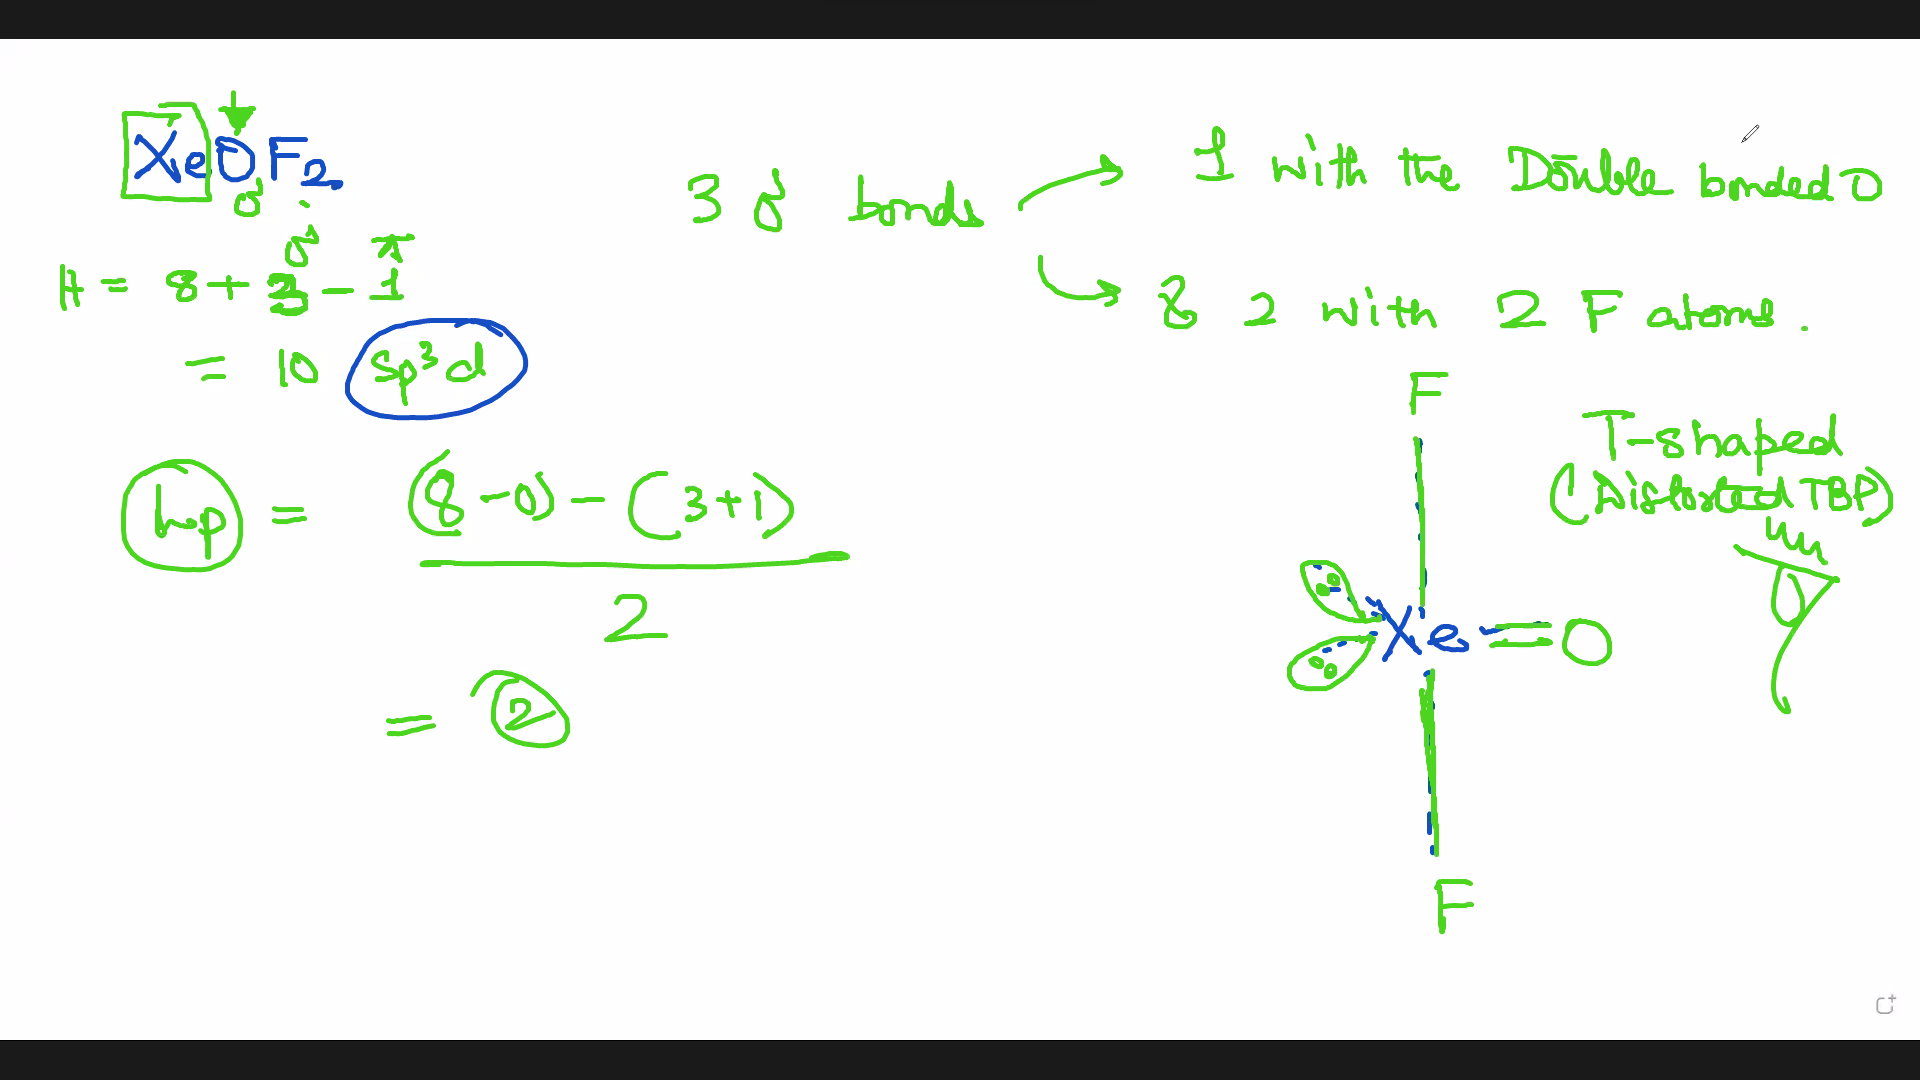 XeOF2
σ
σ π
H = 8 + 3 - 1
= 10 sp³d
l.p = (8-0) - (3+1)
2
= 2
3 σ bonds
1 with the Double bonded O
& 2 with 2 F atoms.
F
T-shaped
(Distorted TBP)
Xe = O
F